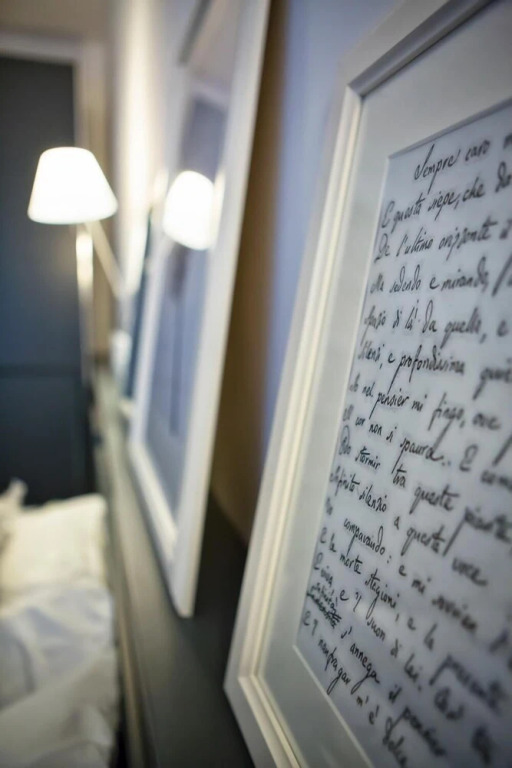 Sempre caro
E questa siepe, che da
De l'ultimo orizzonte
Ma sedendo e mirando,
spazio di là da quella, e
silenzi, e profondissima
Io nel pensier mi fingo, ove
Il cor non si spaura. E
Odo stormir tra queste piante
infinito silenzio a questa voce
comparando: e mi sovvien
E le morte stagioni, e la presente
E viva, e 'l suon di lei.
s'annega il pensier
E 'l naufragar m'è dolce